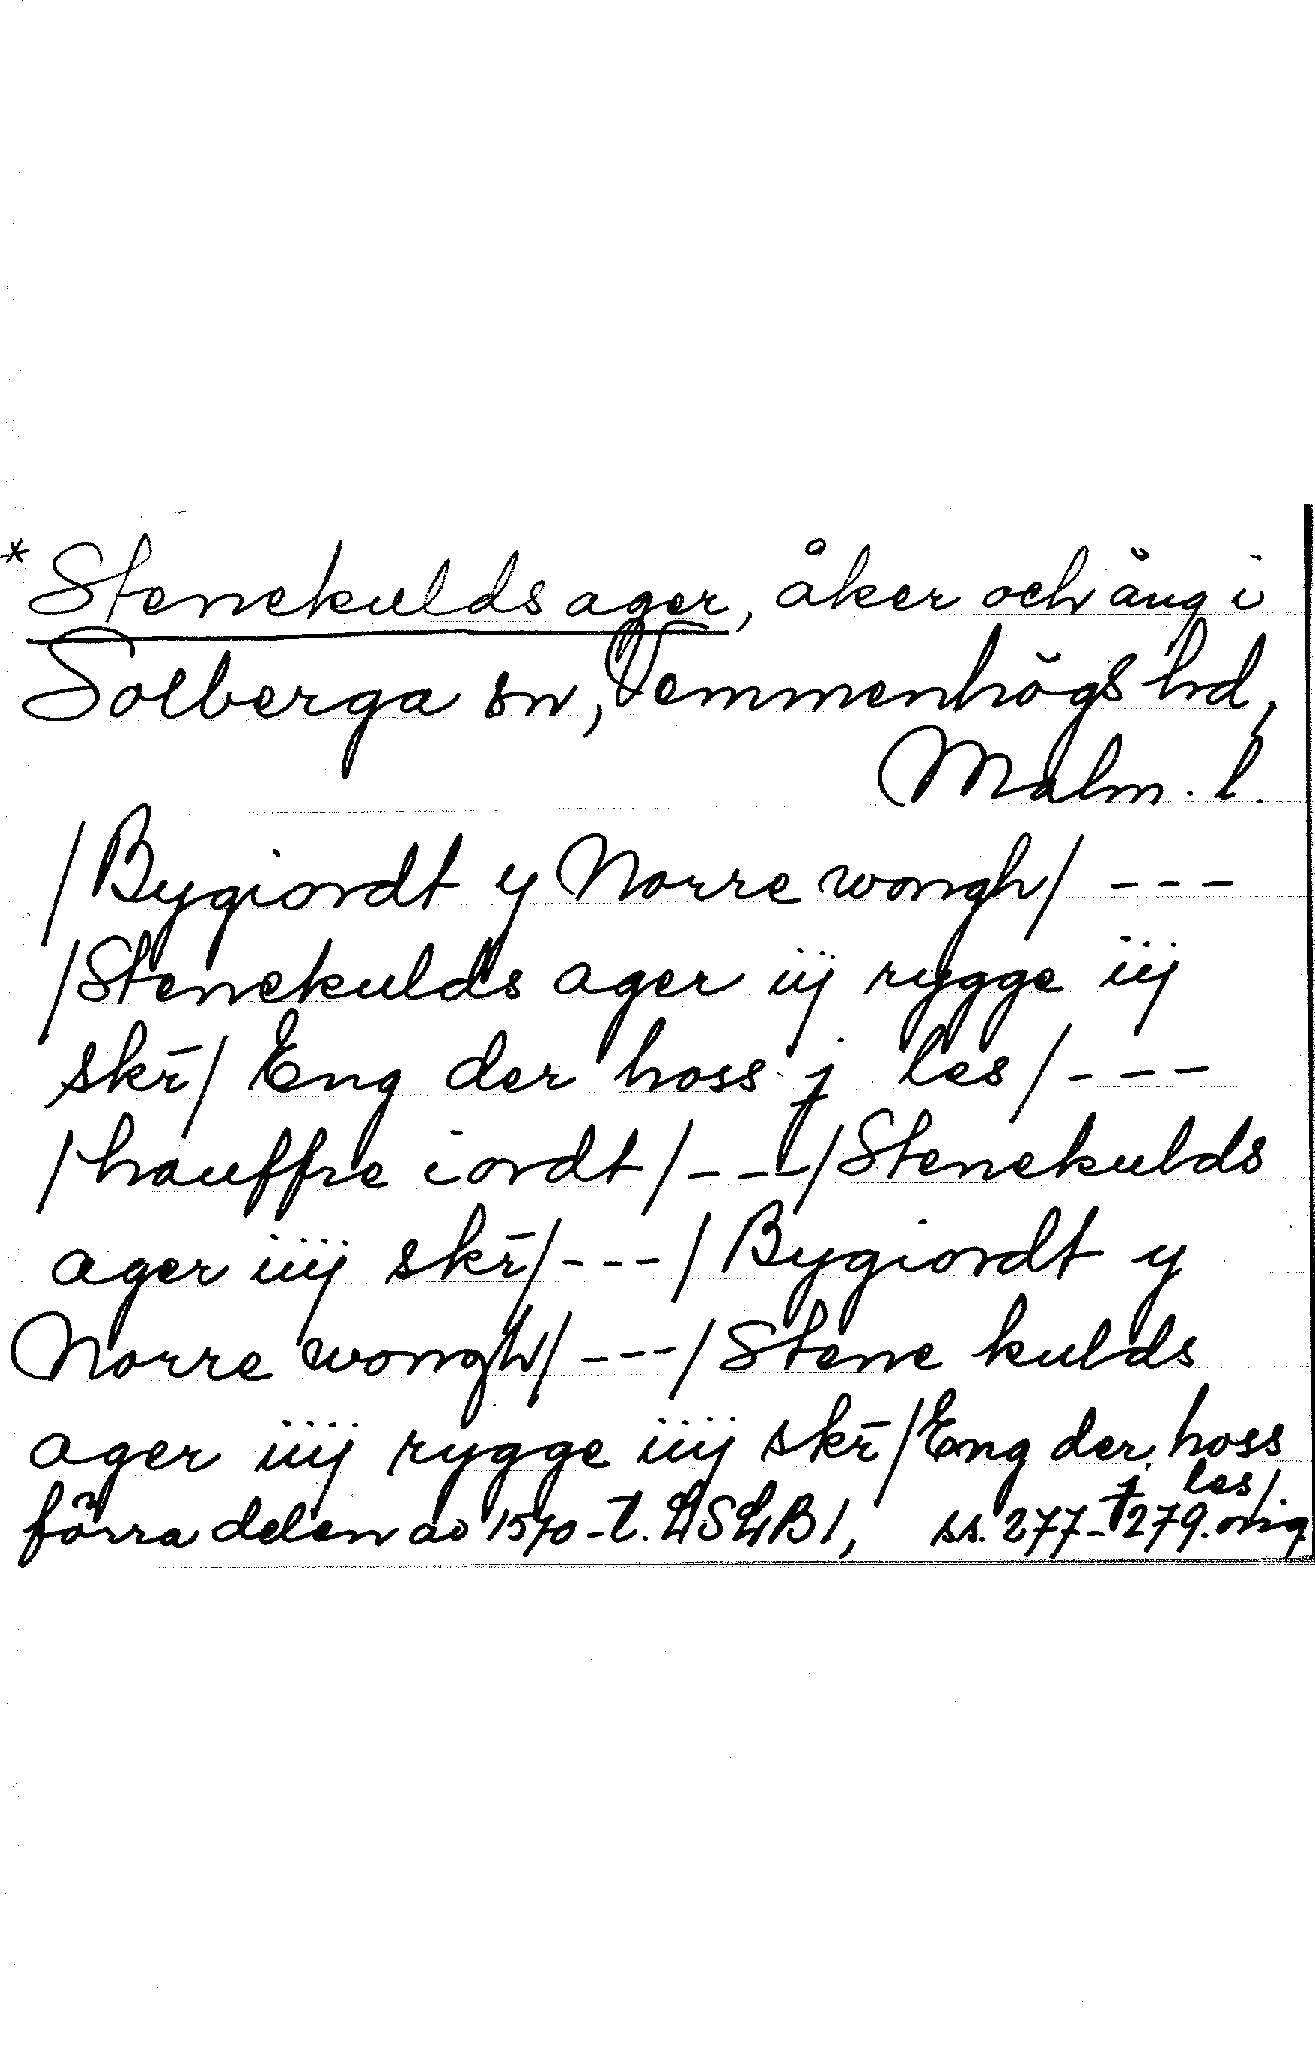 * Stenekulds ager, åker och äng i
Solberga sn, Vemmenhögs hd,
Malm. l.
/Bygiordt y Norre wongh/ ---
/Stenekulds ager iij rygge iij
skr̄/ Eng der hoss j les/---
/hauffre iordt/---/Stenekulds
ager iiij skr̄/---/Bygiordt y
Norre wongh/---/Stene kulds
ager iiij rygge iiij skr̄/Eng der hoss
j les/.
förra delen av 1570-t. LSLB1, ss. 277-279. orig